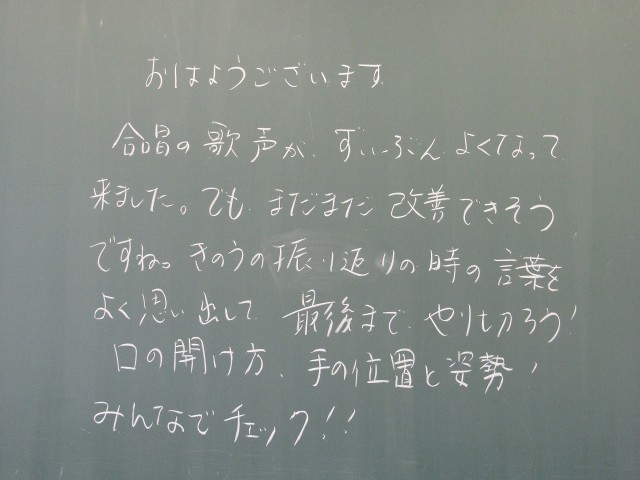 おはようございます
合唱の歌声が、ずいぶんよくなって
来ました。でも、まだまだ改善できそう
ですね。きのうの振り返りの時の言葉を
よく思い出して、最後まで、やり切ろう!
口の開け方、手の位置と姿勢!
みんなでチェック!!